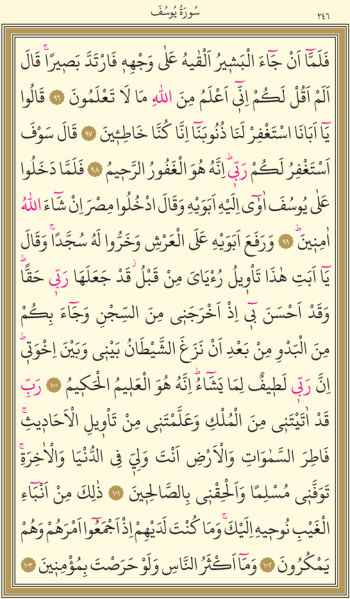 سُورَةُ يُوسُفَ
٢٤٦
فَلَمَّٓا اَنْ جَٓاءَ الْبَش۪يرُ اَلْقٰيهُ عَلٰى وَجْهِه۪ فَارْتَدَّ بَص۪يرًاۚ قَالَ
اَلَمْ اَقُلْ لَكُمْ اِنّ۪ٓي اَعْلَمُ مِنَ اللّٰهِ مَا لَا تَعْلَمُونَ ﴿٩٦﴾ قَالُوا
يَٓا اَبَانَا اسْتَغْفِرْ لَنَا ذُنُوبَنَٓا اِنَّا كُنَّا خَاطِـ۪ٔينَ ﴿٩٧﴾ قَالَ سَوْفَ
اَسْتَغْفِرُ لَكُمْ رَبّ۪يۜ اِنَّهُ هُوَ الْغَفُورُ الرَّح۪يمُ ﴿٩٨﴾ فَلَمَّا دَخَلُوا
عَلٰى يُوسُفَ اٰوٰٓى اِلَيْهِ اَبَوَيْهِ وَقَالَ ادْخُلُوا مِصْرَ اِنْ شَٓاءَ اللّٰهُ
اٰمِن۪ينَۜ ﴿٩٩﴾ وَرَفَعَ اَبَوَيْهِ عَلَى الْعَرْشِ وَخَرُّوا لَهُ سُجَّدًاۚ وَقَالَ
يَٓا اَبَتِ هٰذَا تَأْو۪يلُ رُءْيَايَ مِنْ قَبْلُۘ قَدْ جَعَلَهَا رَبّ۪ي حَقًّاۜ
وَقَدْ اَحْسَنَ ب۪ٓي اِذْ اَخْرَجَن۪ي مِنَ السِّجْنِ وَجَٓاءَ بِكُمْ
مِنَ الْبَدْوِ مِنْ بَعْدِ اَنْ نَزَغَ الشَّيْطَانُ بَيْن۪ي وَبَيْنَ اِخْوَت۪يۜ
اِنَّ رَبّ۪ي لَط۪يفٌ لِمَا يَشَٓاءُۜ اِنَّهُ هُوَ الْعَل۪يمُ الْحَك۪يمُ ﴿١٠٠﴾ رَبِّ
قَدْ اٰتَيْتَن۪ي مِنَ الْمُلْكِ وَعَلَّمْتَن۪ي مِنْ تَأْو۪يلِ الْاَحَاد۪يثِۚ
فَاطِرَ السَّمٰوَاتِ وَالْاَرْضِ اَنْتَ وَلِيّ۪ فِي الدُّنْيَا وَالْاٰخِرَةِۚ
تَوَفَّن۪ي مُسْلِمًا وَاَلْحِقْن۪ي بِالصَّالِح۪ينَ ﴿١٠١﴾ ذٰلِكَ مِنْ اَنْبَٓاءِ
الْغَيْبِ نُوح۪يهِ اِلَيْكَۚ وَمَا كُنْتَ لَدَيْهِمْ اِذْ اَجْمَعُٓوا اَمْرَهُمْ وَهُمْ
يَمْكُرُونَ ﴿١٠٢﴾ وَمَٓا اَكْثَرُ النَّاسِ وَلَوْ حَرَصْتَ بِمُؤْمِن۪ينَ ﴿١٠٣﴾